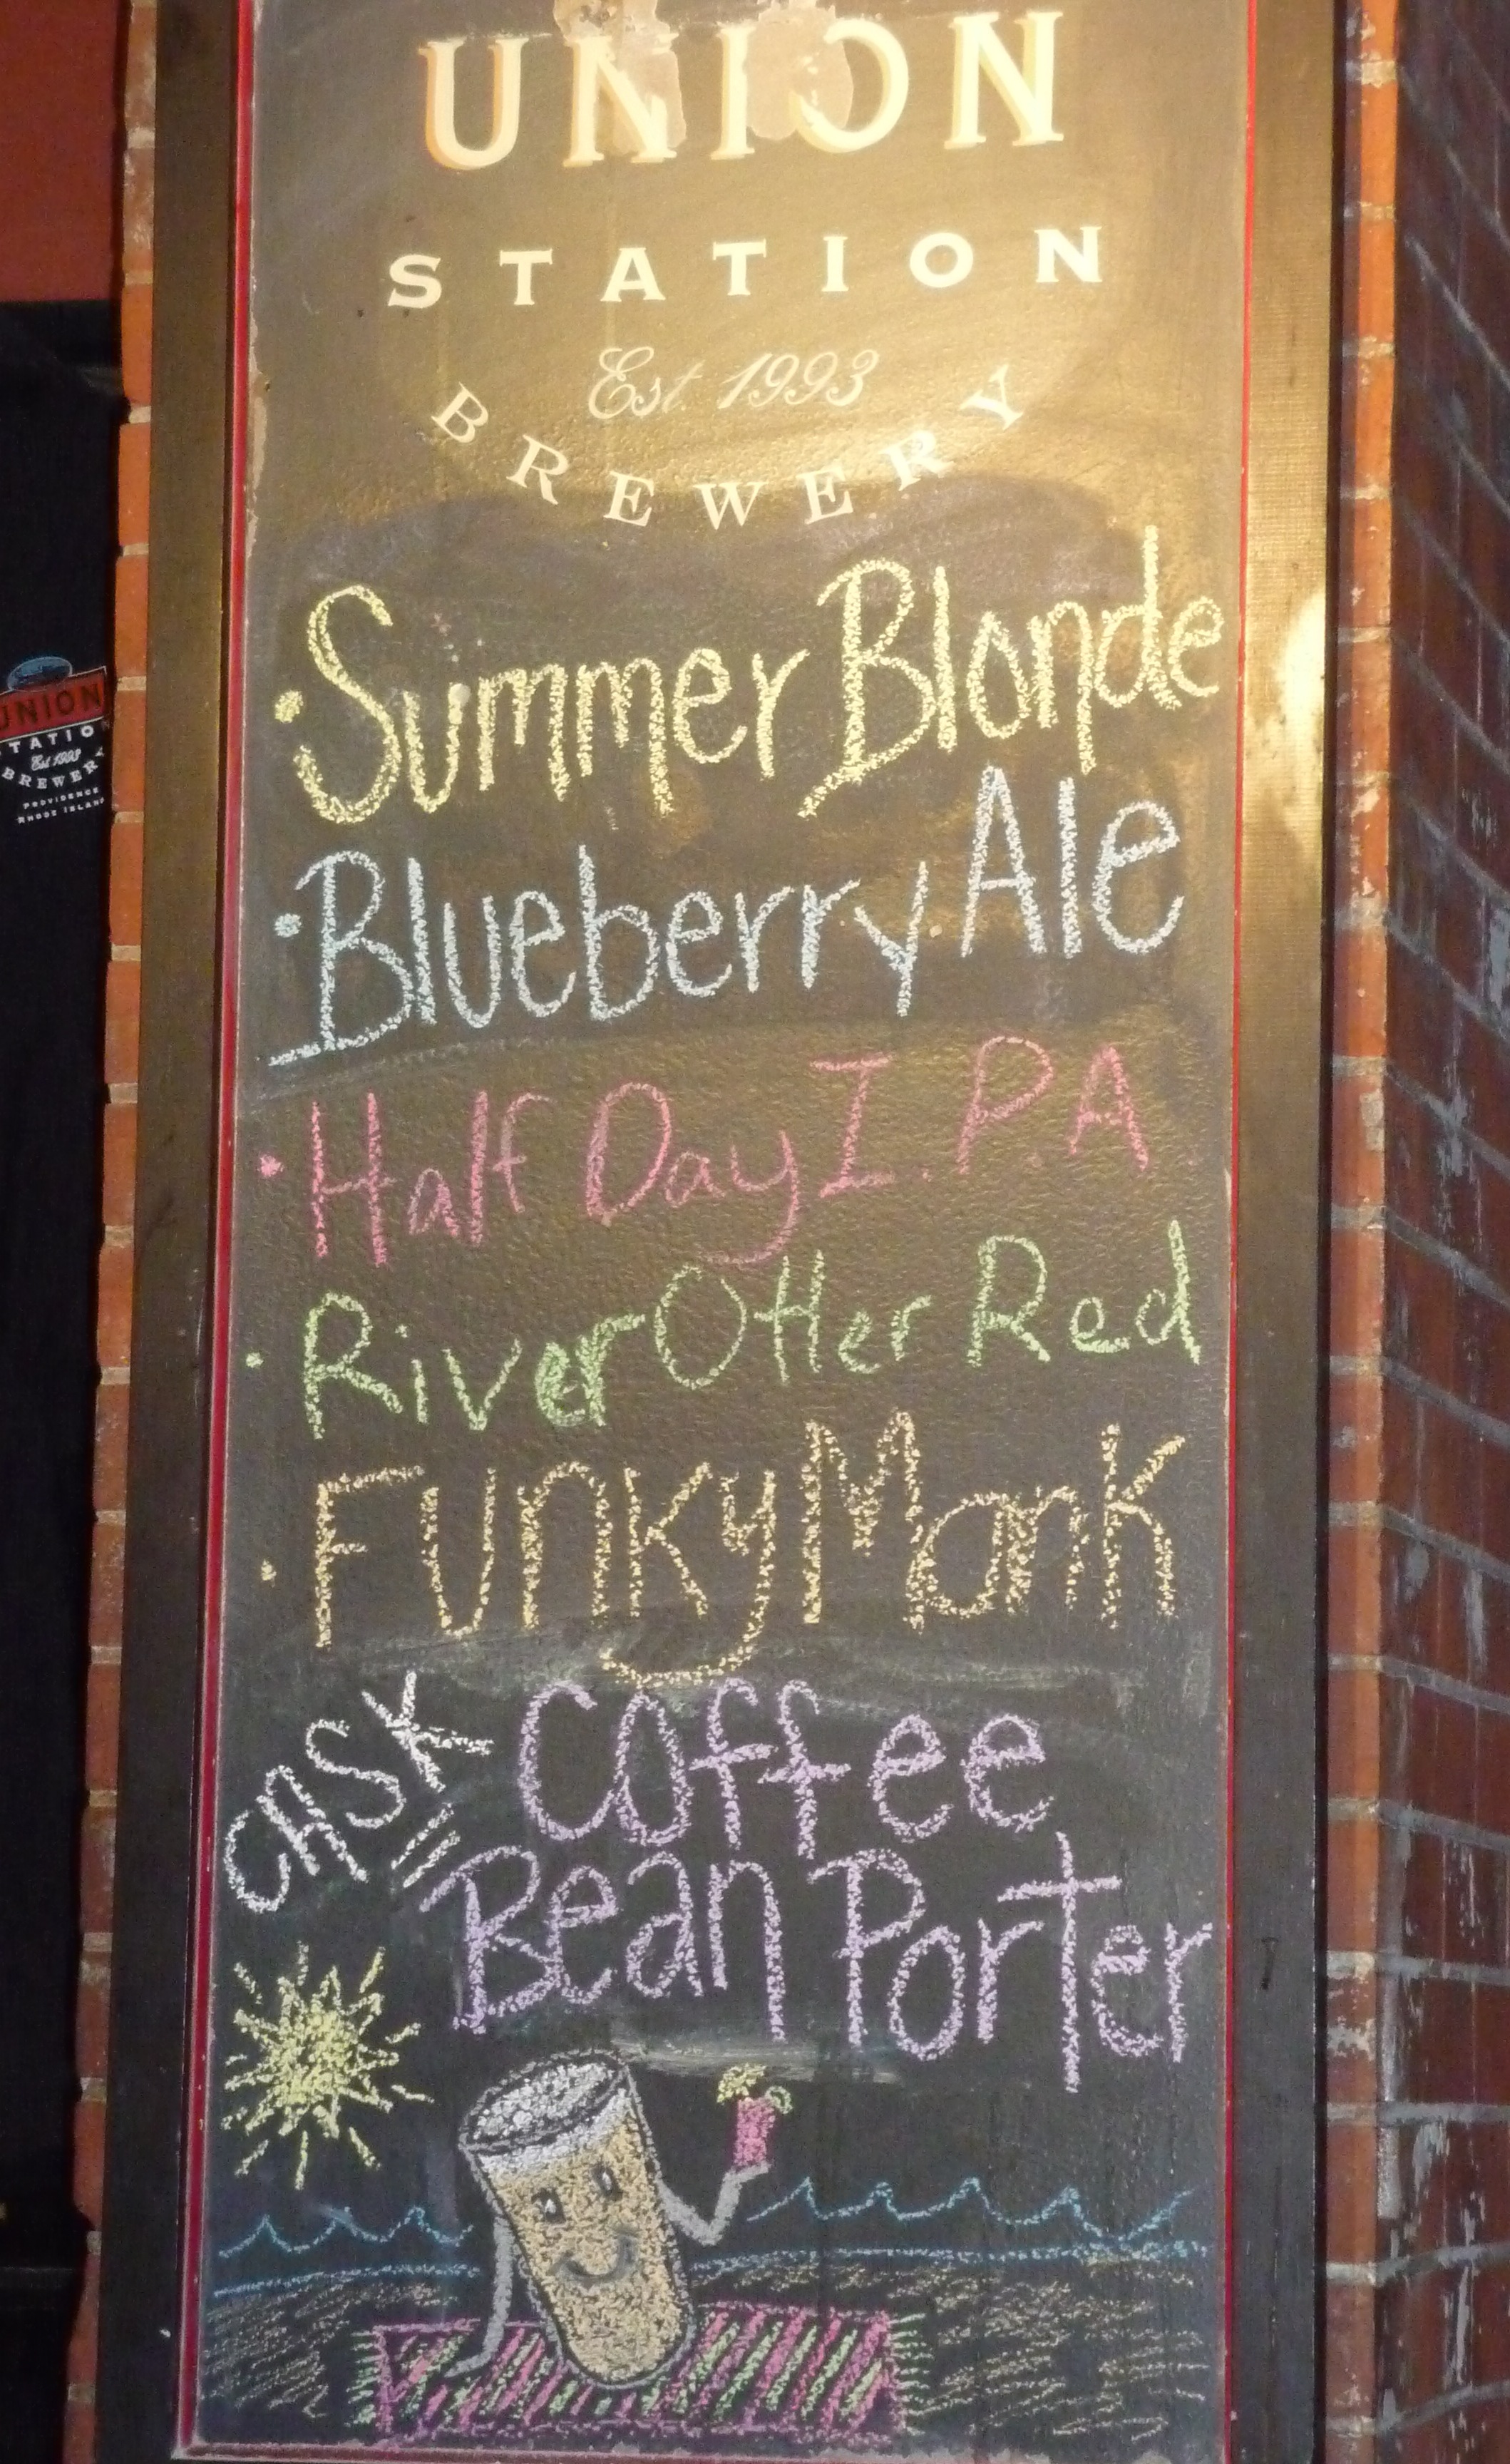 UNION
STATION
Est. 1993
BREWERY
• Summer Blonde
• Blueberry Ale
• Half Day I.P.A
• River Otter Red
• Funky Monk
CASK Coffee
Bean Porter
UNION
STATION
Est 1993
BREWERY
PROVIDENCE
RHODE ISLAND